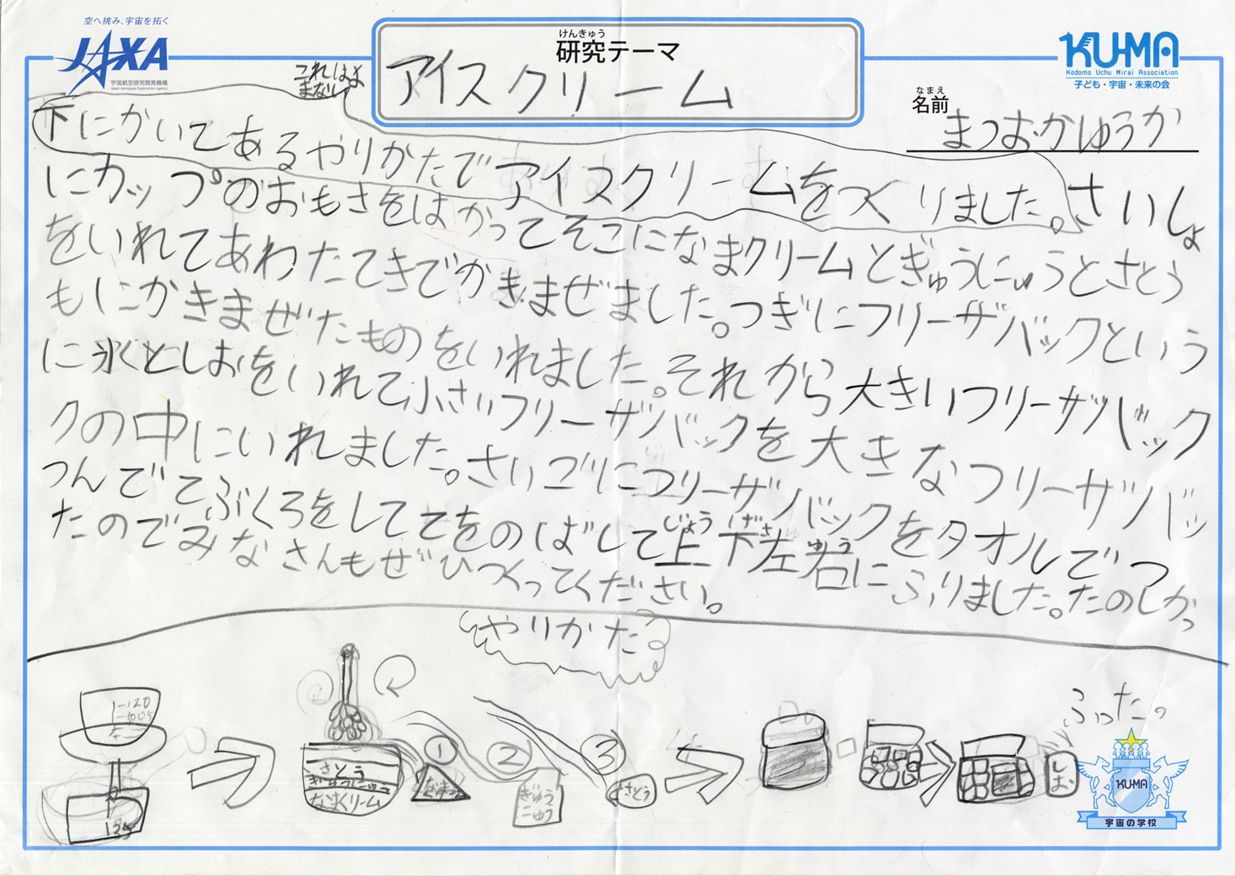 空へ挑み、宇宙を拓く
JAXA
宇宙航空研究開発機構
Japan Aerospace Exploration Agency
けんきゅう
研究テーマ
アイスクリーム
KU-MA
Kodomo Uchu Mirai Association
子ども・宇宙・未来の会
なまえ
名前
まつおかゆうか
これはよ
まないで
下にかいてあるやりかたでアイスクリームをつくりました。さいしょ
にカップのおもさをはかってそこになまクリームとぎゅうにゅうとさとう
をいれてあわたてきでかきまぜました。つぎにフリーザバックという
もにかきまぜたものをいれました。それから大きいフリーザバック
に氷としおをいれて小さいフリーザバックを大きなフリーザバッ
クの中にいれました。さいごにフリーザバックをタオルでつ
つんでてぶくろをしててをのばして上下左右にふりました。たのしかっ
じょう げ さ ゆう
たのでみなさんもぜひつくってください。
やりかた
さとう
ぎゅうにゅう
なまクリーム
①
②
③
ぎゅう
にゅう
さとう
しお
ふった。
KU-MA
宇宙の学校